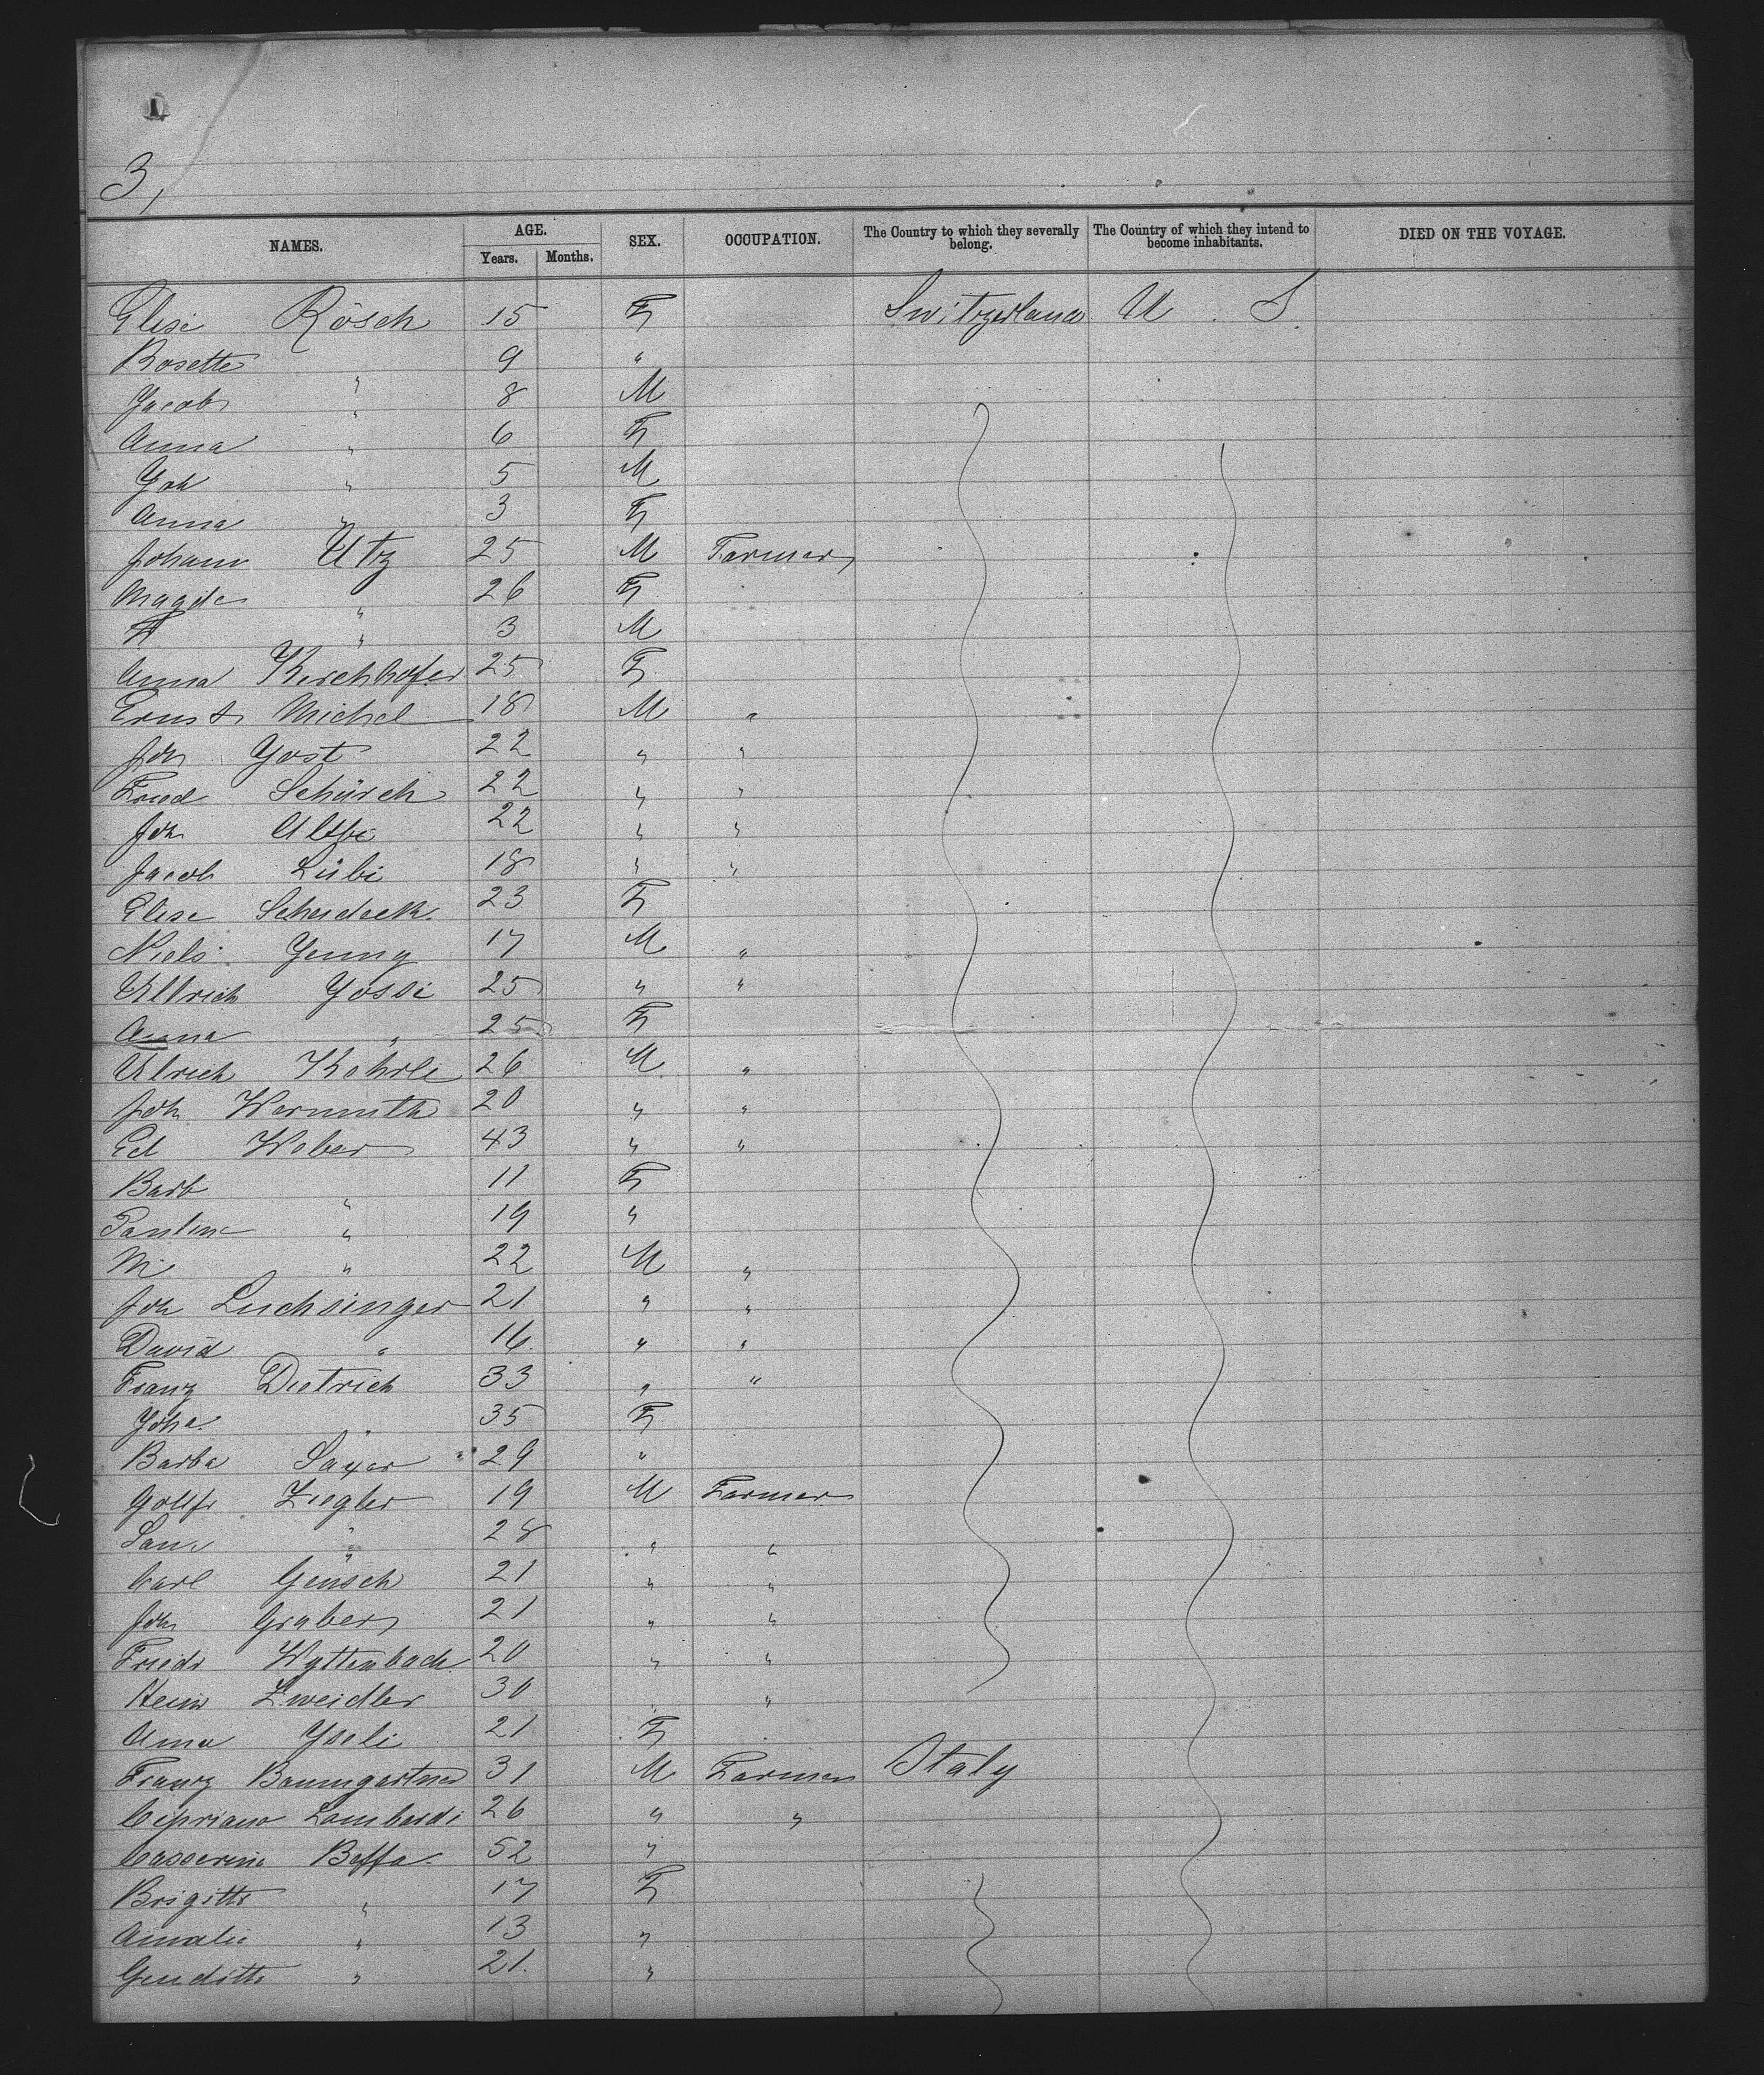 3,
NAMES. AGE. SEX. OCCUPATION. The Country to which they severally belong. The Country of which they intend to become inhabitants. DIED ON THE VOYAGE.
Years. Months.
Elise Rösch 15 F Switzerland U. S.
Rosette " 9 "
Jacob " 8 M
Anna " 6 F
Joh " 5 M
Anna " 3 F
Johann Utz 25 M Farmer
Magda " 26 F
" 3 M
Anna Kirchhofer 25 F
Ernst Michel 18 M "
Joh Yost 22 " "
Fried Schürch 22 " "
Joh 22 " "
Jacob Lübi 18 " "
Elise Scheideck 23 F
Niels Jenny 17 M "
Ullrich Yossi 25 " "
Anna " 25 F
Ulrich Kohrli 26 M "
Joh Wermuth 20 " "
Ed Weber 43 " "
Barb " 11 F
Pauline " 19 "
" 22 M "
Joh Luchsinger 21 " "
David " 16 " "
Franz Dietrich 33 " "
Joha " 35 F
Barba Saxer 29 "
Gottfr Ziegler 19 M Farmer
" 28 " "
Carl Geüsch 21 " "
Joh Graber 21 " "
Friedr Wyttenbach 20 " "
Heinr Zweidler 30 " "
Anna Yseli 21 F
Franz Baumgartner 31 M Farmer Italy
Cipriano Lombardi 26 " "
Beffa 52 "
Brigitte " 17 F
Amalie " 13 "
Giuditta " 21 "